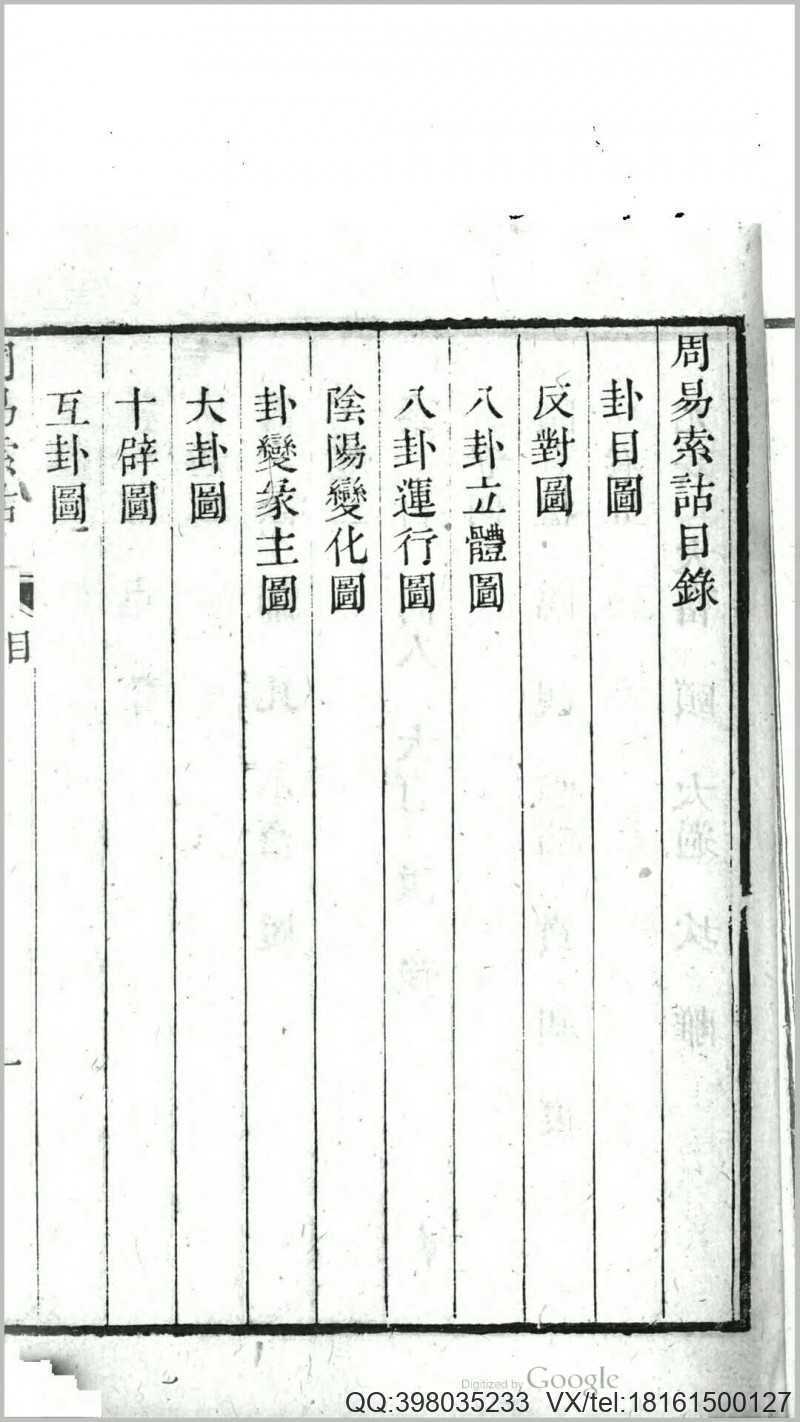 周易索詁目錄
卦目圖
反對圖
八卦立體圖
八卦運行圖
陰陽變化圖
卦變彖主圖
大卦圖
十辟圖
互卦圖
目
一
Digitized by Google
QQ:398035233 VX/tel:18161500127